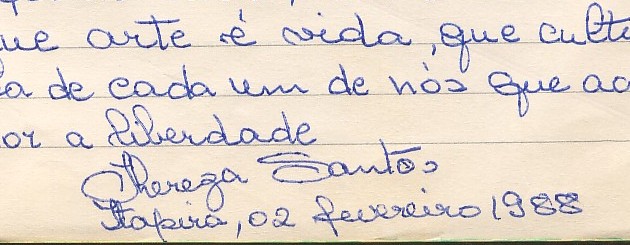 ue arte é vida, que cultu
a de cada um de nós que ac
or a liberdade
Thereza Santos
Itapira, 02 fevereiro 1988